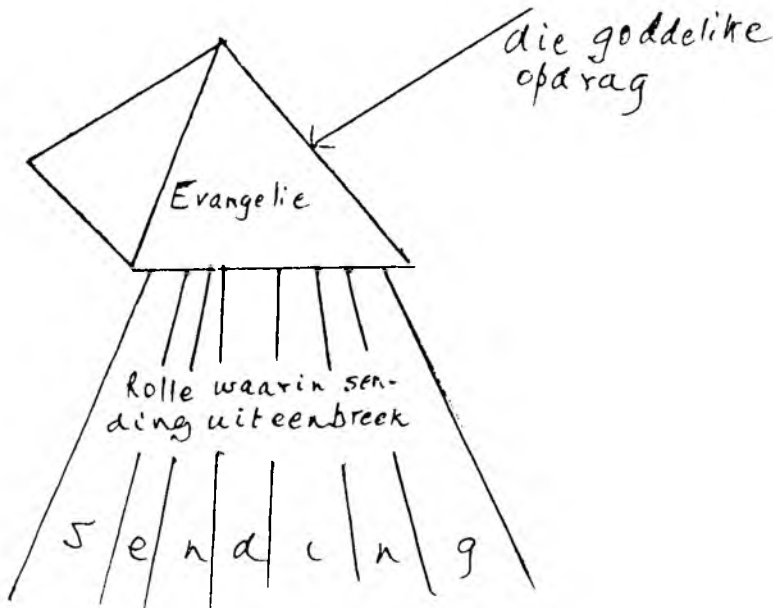 die goddelike
opdrag
Evangelie
Rolle waarin sen-
ding uiteenbreek
Sending